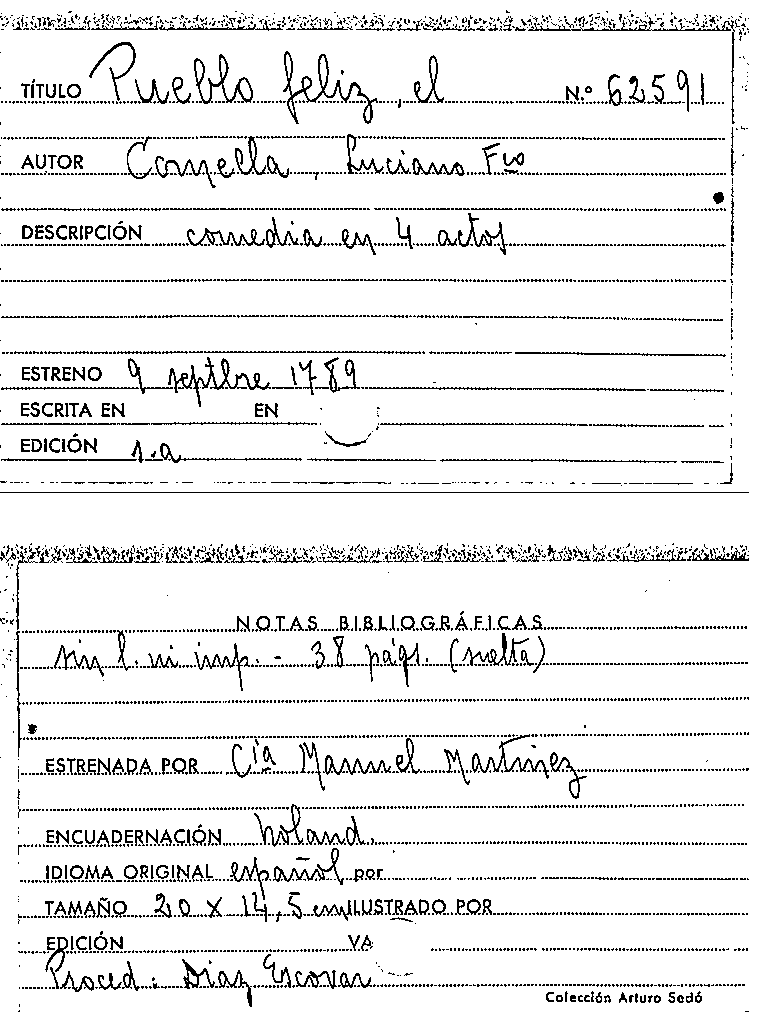 TÍTULO Pueblo feliz, el N.º 62591
AUTOR Comella, Luciano Fco
DESCRIPCIÓN comedia en 4 actos
ESTRENO 9 septbre 1789
ESCRITA EN EN
EDICIÓN s.a
NOTAS BIBLIOGRÁFICAS
sin l. ni imp. - 38 págs. (suelta)
ESTRENADA POR Cía Manuel Martínez
ENCUADERNACIÓN holand.
IDIOMA ORIGINAL español por
TAMAÑO 20 X 14,5 cm ILUSTRADO POR
EDICIÓN VA
Proced: Díaz Escovar
Colección Arturo Sedó